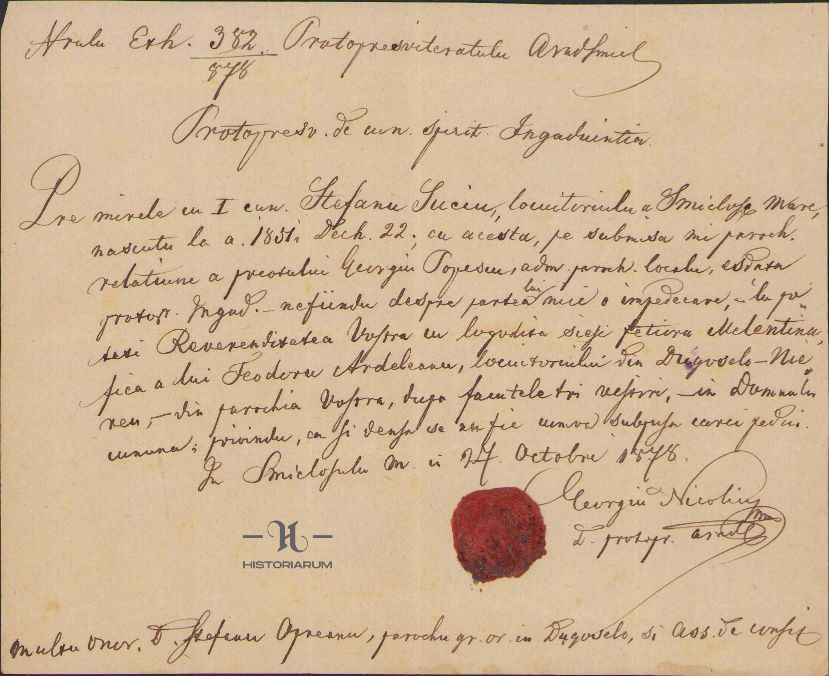 Nrulu Exh. 382. Protopresviteratulu
878
Protopresv. de cun. spirit. Ingaduintia.
Pre mirele cu I cun. Stefanu Suciu, locuitoriulu a Smiclosz mare,
nascutu la a. 1851, Dech. 22; cu acesta, pe submisa mi paroch.
relatiune a preotului Georgiu Popescu, adm. paroch. localu, esdata
protopr. Ingad. - nefiindu despre partea lui nice o impedecare, - lu po
teti Reverenditatea Vostra cu logodita sieși fetiora Melentina,
fica a lui Teodoru Ardeleanu, locuitoriului din Dugoselo - Nie
reu, - din parochia Vostra, dupa facutele tri vestiri, - in Domnulu
cununa; privindu, ca si densa se nu fie cumva subpusa carei pedici.
In Smiclosulu M. in 27. Octobri 1878.
Georgiu Nicolici
D. protopr.
HISTORIARUM
Multu onor. D. Stefanu Opreanu, parochu gr. or. in Dugoselo, si Ass. de consist